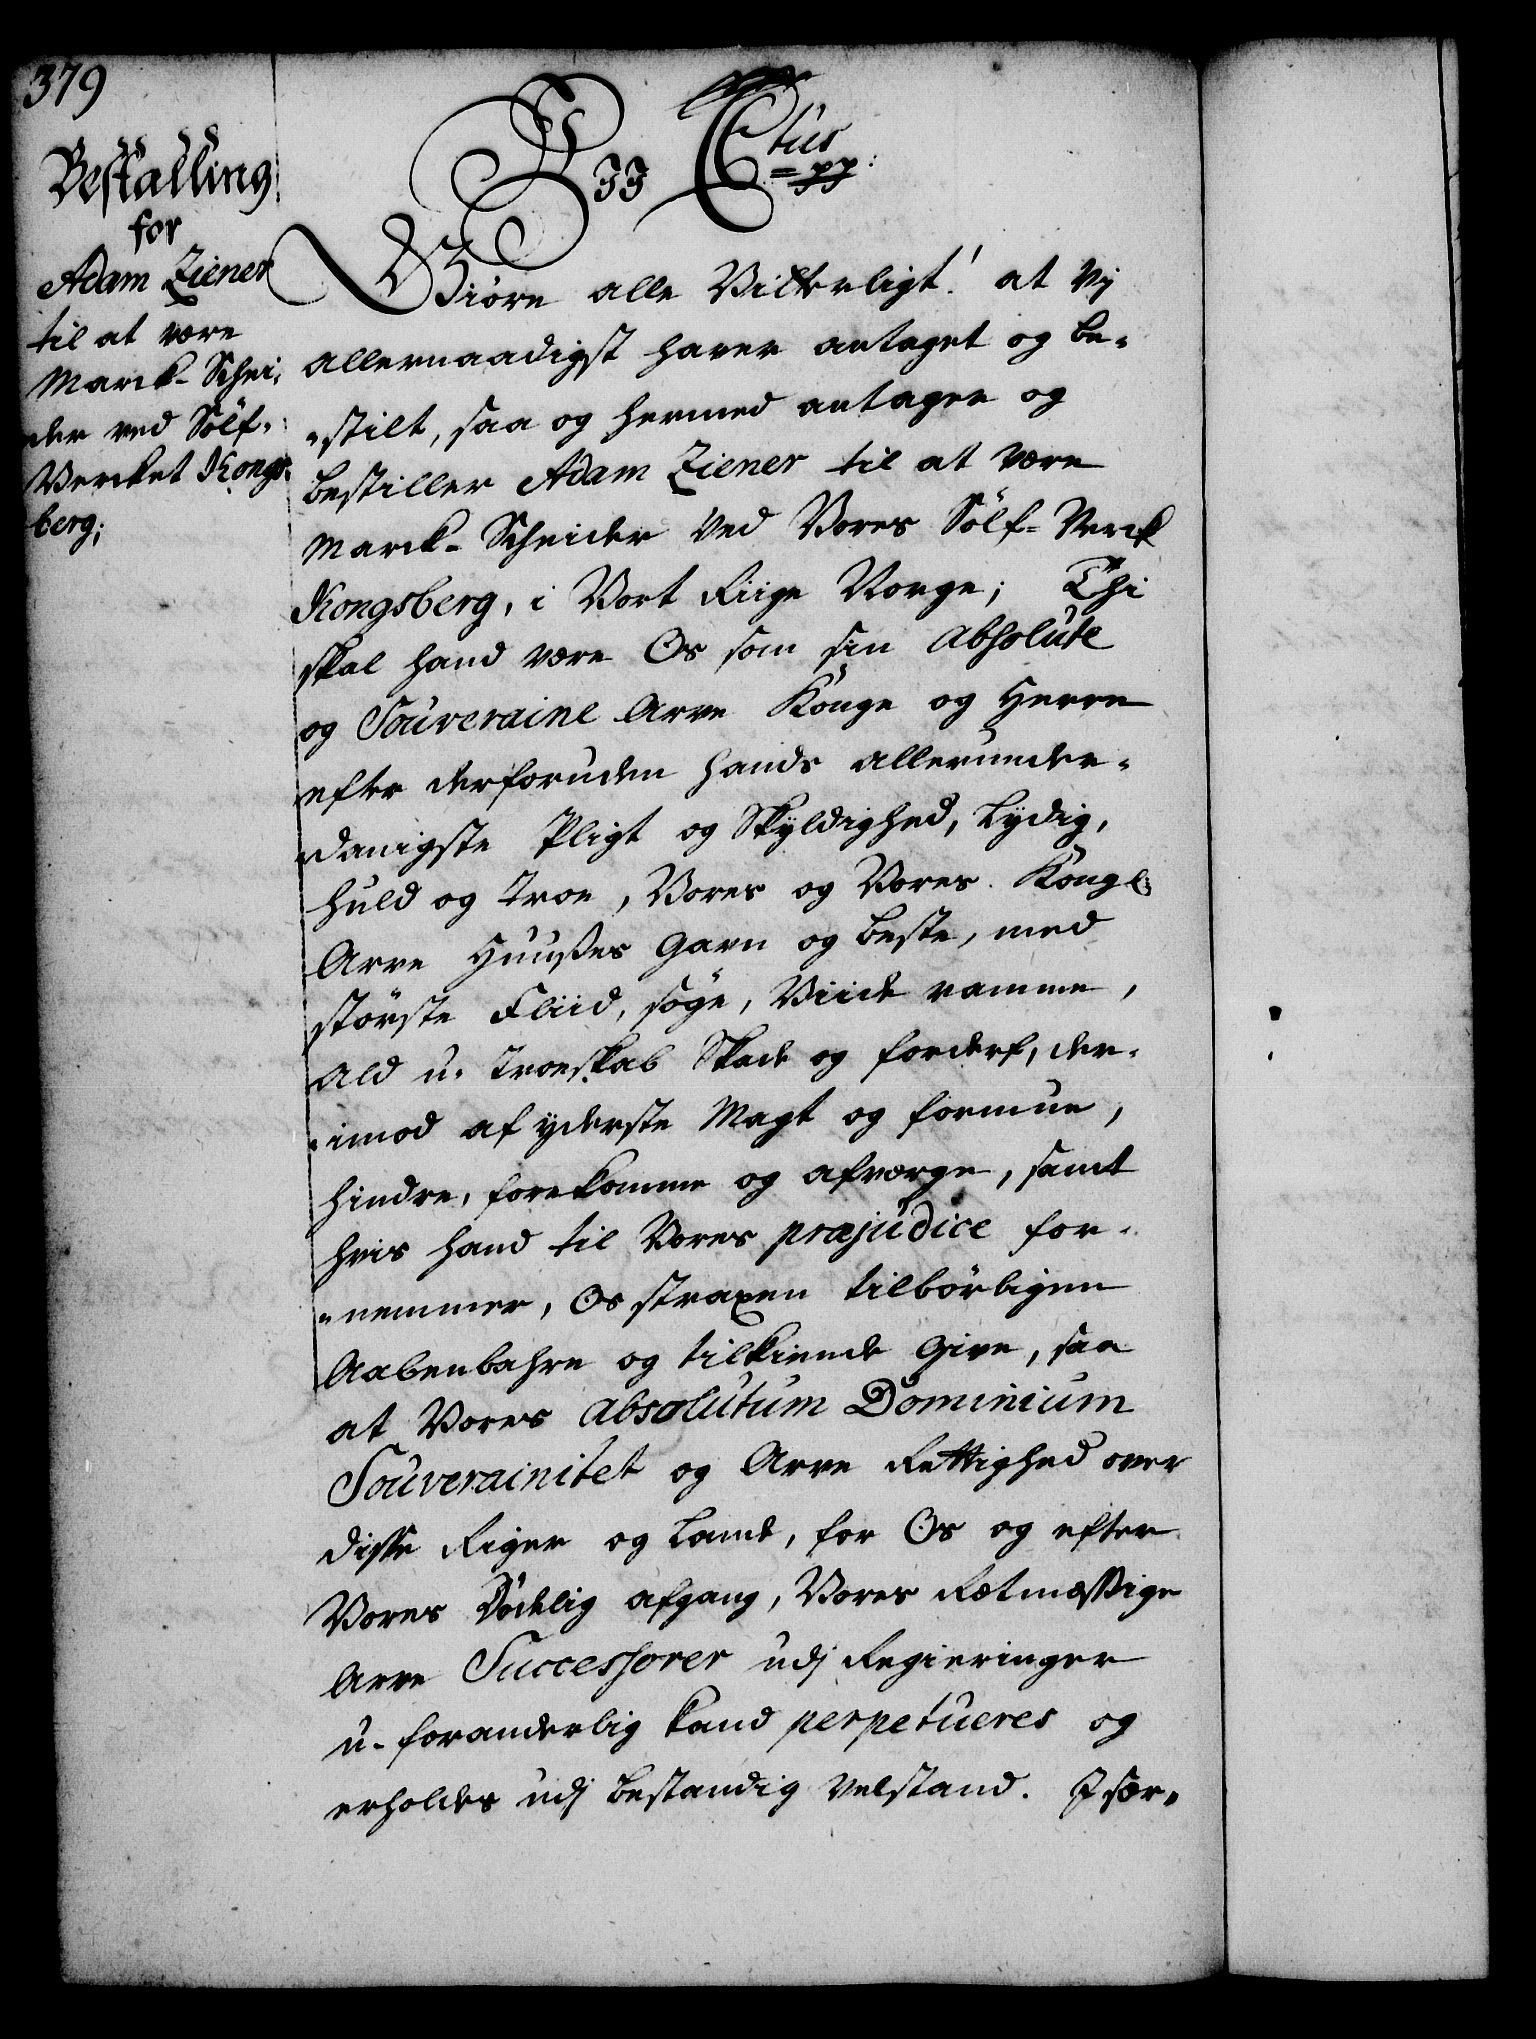 379
Bestalling
for
Adam Ziener
til at være
Marck-Schei,
der ved Sölf-
Vercket Kongs-
berg;
Vij Ctus
=pp:
Giöre alle Vitterligt! at Vj
allernaadigst haver antaget og be-
-stilt, saa og hermed antager og
bestiller Adam Ziener til at være
Marck-Scheider Ved Vores Sölf-Verck
Kongsberg, i Vort Riige Norge; Thi
skal hand være Os som sin Absolute
og Souveraine Arve Konge og Herre
efter derforuden hands allerunder-
danigste Pligt og Skyldighed, Lydig,
huld og troe, Vores og Vores Kongl:
Arve Huußes Gavn og beste, med
störste Fliid, söge, Viide ramme,
Ald u-troeskab Skade og forderf, der-
-imod af yderste Magt og formue,
hindre, forekomme og afværge, samt
hvis hand til Vores præjudice for-
-nemmer, Os straxen tilbörligen
Aabenbahre og tilkiende give, saa
at Vores absolutum Dominium
Souverainitet og Arve Rettighed over
disse Riger og Lande, for Os og efter
Vores Dödelig afgang, Vores Rætmæssige
Arve Successorer udj Regieringer
u-foranderlig kand perpetueres og
erholdes udj bestandig Velstand. Især-